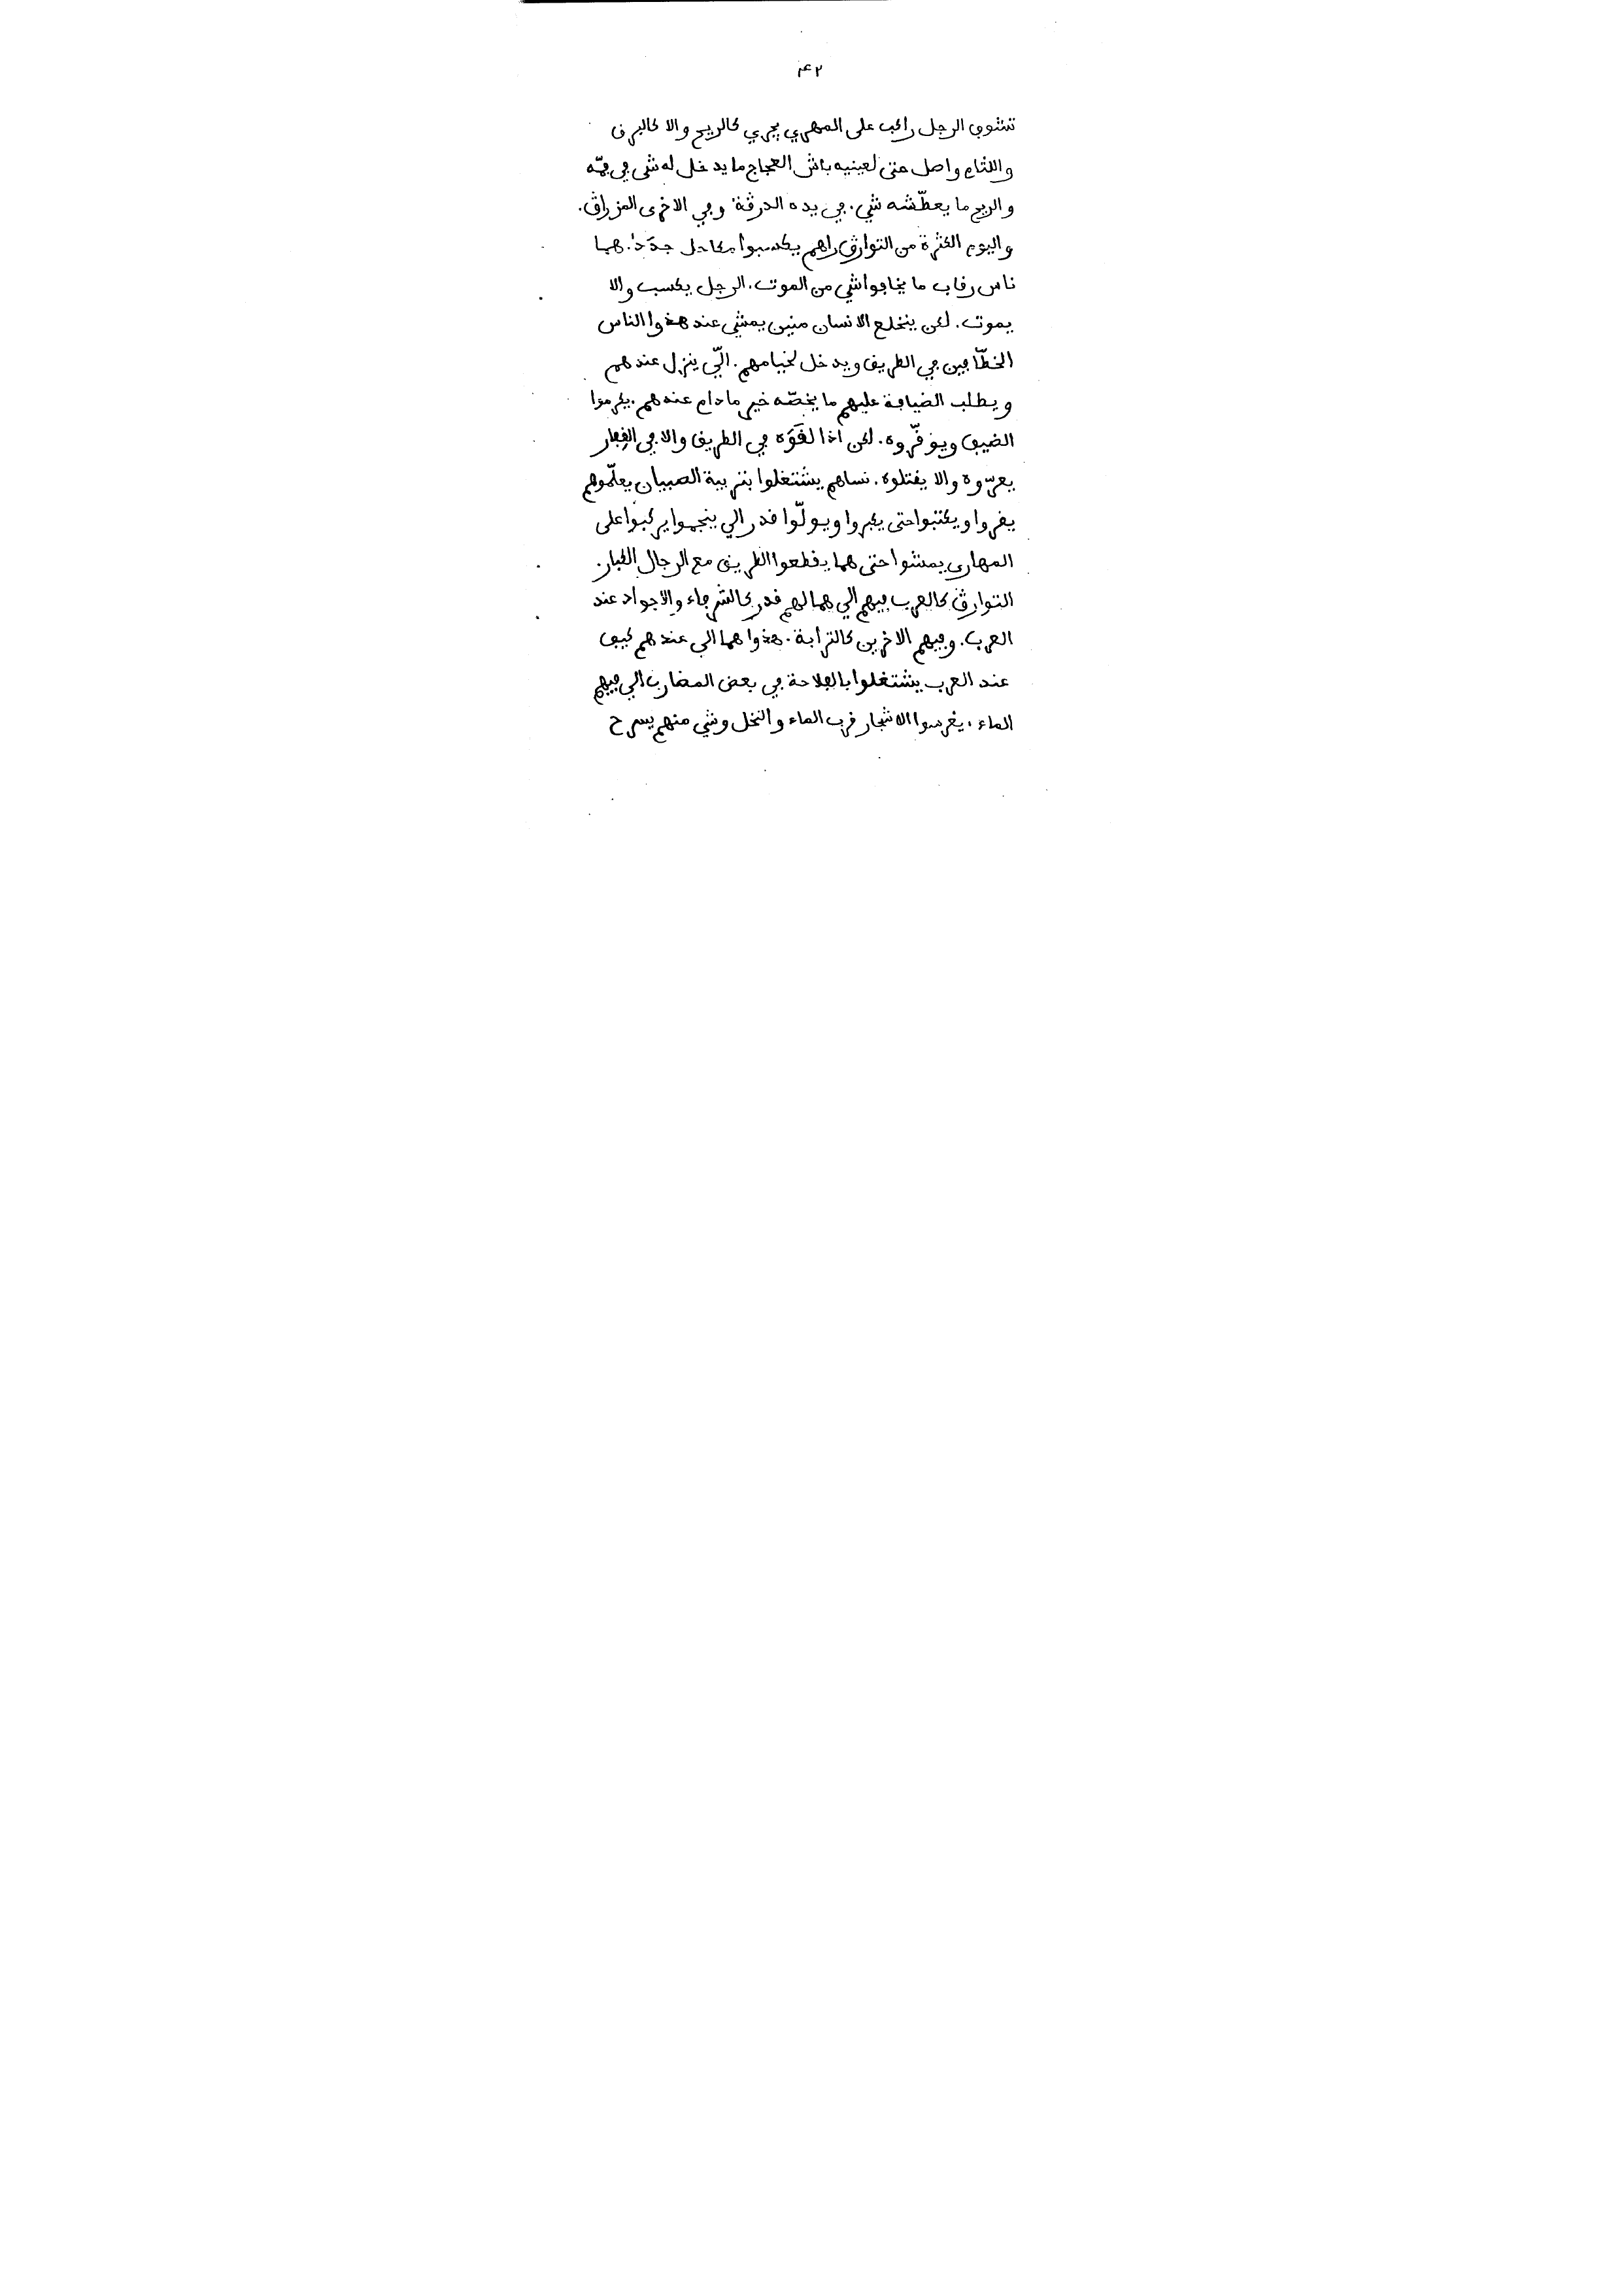 تشوف الرجل راكب على المهري يجري كالريح والا كالبرق
واللثام واصل حتى لعينيه باش العجاج ما يدخل له شي في فمّه
والريح ما يعطّشه شي. في يده الدرڤة وفي الاخرى المزراڤ.
واليوم الكثرة من التوارڤ راهم يكسبوا مكاحل جدَدْ. هما
ناس رقاب ما يخافوا شي من الموت. الرجل يكسب والا
يموت. لكن ينخلع الانسان منين يمشي عند هذوا الناس
الخطّافين في الطريق ويدخل لخيامهم. الّي ينزل عندهم
ويطلب الضيافة عليهم ما يخصّه خير ما دام عندهم. يكرموا
الضيف ويوقّروه. لكن اذا لقَوَه في الطريق والا في القِفار
يعرّوه والا يقتلوه. نساهم يشتغلوا بتربية الصبيان يعلّموهم
يقروا ويكتبوا حتى يكبروا ويولّوا قدر الي ينجموا يركبوا على
المهارى يمشوا حتى هما يقطعوا الطريق مع الرجال الكبار.
التوارڤ كالعرب فيهم الي هما لهم قدر كالشرفاء والاجواد عند
العرب. وفيهم الاخرين كالترابة. هذوا هما الي عندهم كيف
عند العرب يشتغلوا بالفلاحة في بعض المضارب الي فيهم
الماء. يغرسوا الاشجار قرب الماء والنخل وشي منهم يسرح